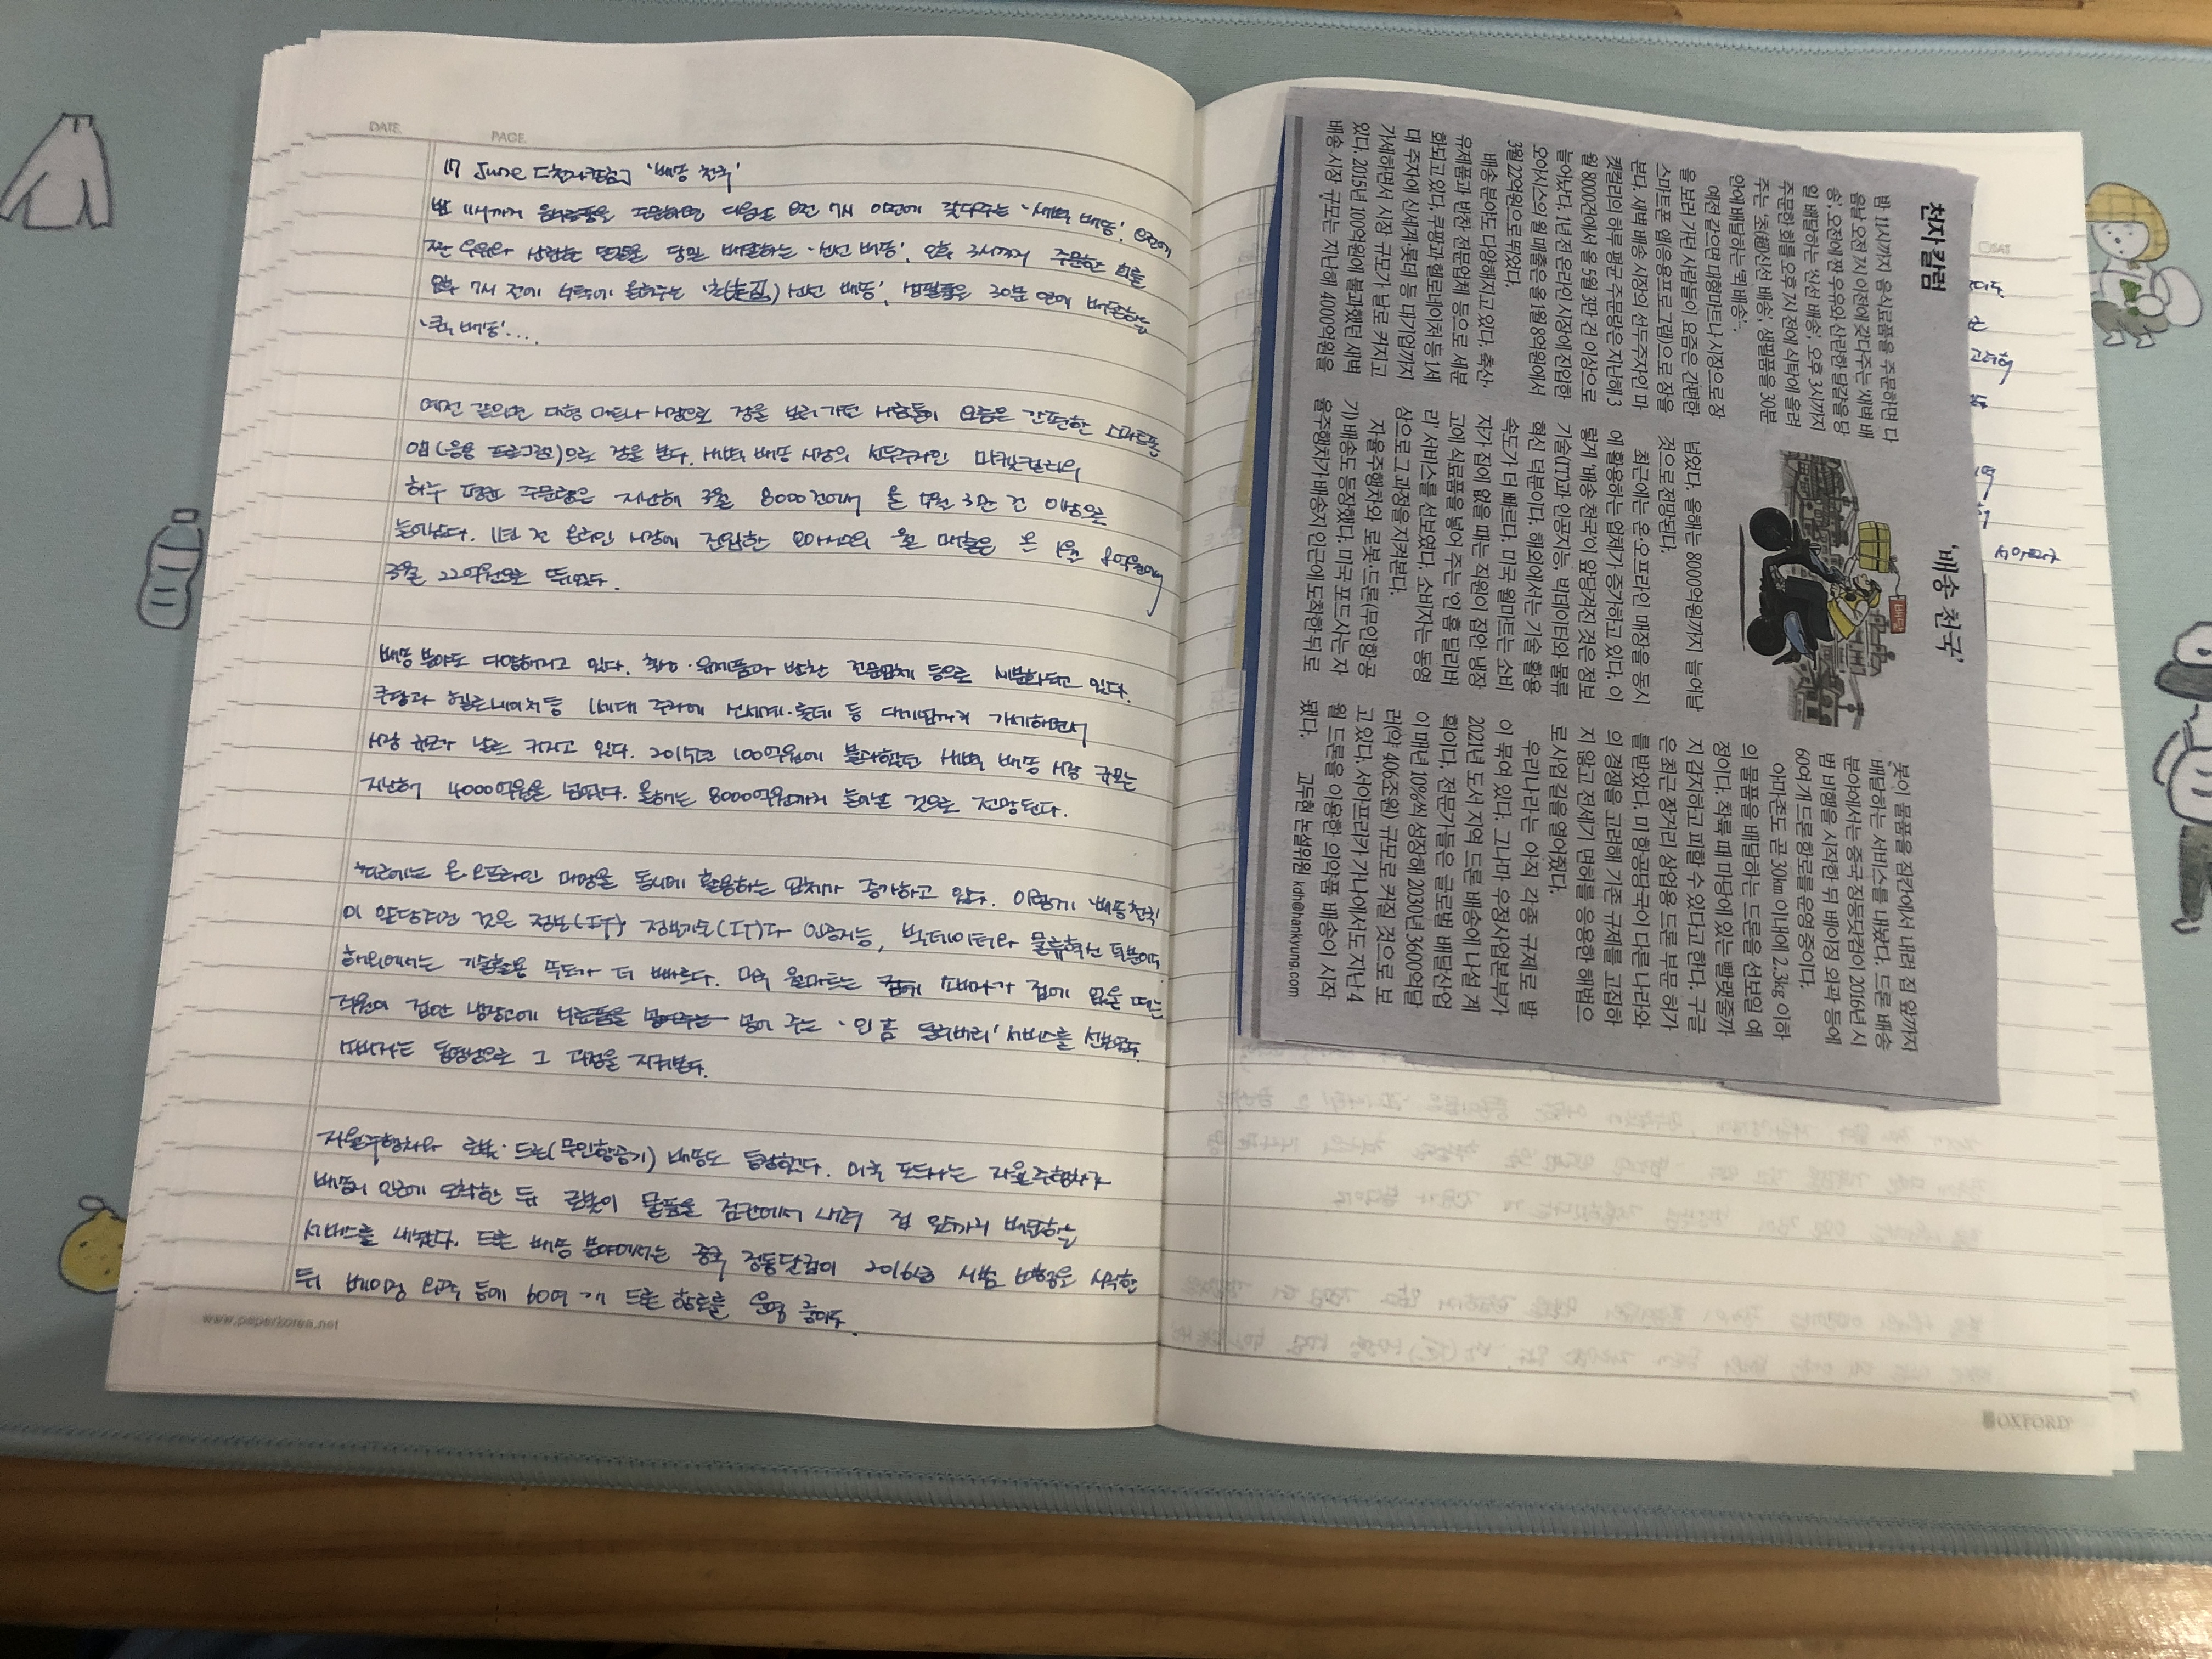 DATE.
PAGE.
17 June 「천자칼럼」 '배송 천국'
밤 11시까지 음식료품을 주문하면 다음날 오전 7시 이전에 갖다주는 '새벽 배송'. 오전에
짠 우유와 신선한 달걀을 당일 배달하는 '신선 배송', 오후 3시까지 주문한 회를
오후 7시 전에 식탁에 올려주는 '초(超)신선 배송', 생필품을 30분 안에 배달하는
'퀵 배송'...
예전 같으면 대형 마트나 시장으로 장을 보러 가던 사람들이 요즘은 간편한 스마트폰
앱(응용 프로그램)으로 장을 본다. 새벽 배송 시장의 선두주자인 마켓컬리의
하루 평균 주문량은 지난해 3월 8000건에서 올 5월 3만 건 이상으로
늘어났다. 1년 전 온라인 시장에 진입한 오아시스의 월 매출은 올 1월 8억원에서
3월 22억원으로 뛰었다.
배송 분야도 다양해지고 있다. 축산·유제품과 반찬 전문업체 등으로 세분화되고 있다.
쿠팡과 헬로네이처 등 1세대 주자에 신세계·롯데 등 대기업까지 가세하면서
시장 규모가 날로 커지고 있다. 2015년 100억원에 불과했던 새벽 배송 시장 규모는
지난해 4000억원을 넘었다. 올해는 8000억원까지 늘어날 것으로 전망된다.
최근에는 온·오프라인 매장을 동시에 활용하는 업체가 증가하고 있다. 이렇게 '배송 천국'
이 앞당겨진 것은 정보(IT) 정보기술(IT)과 인공지능, 빅데이터와 물류혁신 덕분이다.
해외에서는 기술활용 속도가 더 빠르다. 미국 월마트는 집에 소비자가 집에 없을 때는
직원이 집안 냉장고에 식료품을 넣어주는 넣어 주는 '인 홈 딜리버리' 서비스를 선보였다.
소비자는 동영상으로 그 과정을 지켜본다.
자율주행차와 로봇·드론(무인항공기) 배송도 등장했다. 미국 포드사는 자율주행차가
배송지 인근에 도착한 뒤 로봇이 물품을 짐칸에서 내려 집 앞까지 배달하는
서비스를 내놨다. 드론 배송 분야에서는 중국 징둥닷컴이 2016년 시범 비행을 시작한
뒤 베이징 외곽 등에 60여 개 드론 항로를 운영 중이다.
www.paperkorea.net
천자칼럼
'배송 천국'
밤 11시까지 음식료품을 주문하면 다
음날 오전 7시 이전에 갖다주는 '새벽 배
송', 오전에 짠 우유와 신선한 달걀을 당
일 배달하는 '신선 배송', 오후 3시까지
주문한 회를 오후 7시 전에 식탁에 올려
주는 '초(超)신선 배송', 생필품을 30분
안에 배달하는 '퀵 배송'….
예전 같으면 대형마트나 시장으로 장
을 보러 가던 사람들이 요즘은 간편한
스마트폰 앱(응용프로그램)으로 장을
본다. 새벽 배송 시장의 선두주자인 마
켓컬리의 하루 평균 주문량은 지난해 3
월 8000건에서 올 5월 3만 건 이상으로
늘어났다. 1년 전 온라인 시장에 진입한
오아시스의 월 매출은 올 1월 8억원에서
3월 22억원으로 뛰었다.
배송 분야도 다양해지고 있다. 축산·
유제품과 반찬 전문업체 등으로 세분
화되고 있다. 쿠팡과 헬로네이처 등 1세
대 주자에 신세계·롯데 등 대기업까지
가세하면서 시장 규모가 날로 커지고
있다. 2015년 100억원에 불과했던 새벽
배송 시장 규모는 지난해 4000억원을
넘었다. 올해는 8000억원까지 늘어날
것으로 전망된다.
최근에는 온·오프라인 매장을 동시
에 활용하는 업체가 증가하고 있다. 이
렇게 '배송 천국'이 앞당겨진 것은 정보
기술(IT)과 인공지능, 빅데이터와 물류
혁신 덕분이다. 해외에서는 기술 활용
속도가 더 빠르다. 미국 월마트는 소비
자가 집에 없을 때는 직원이 집안 냉장
고에 식료품을 넣어 주는 '인 홈 딜리버
리' 서비스를 선보였다. 소비자는 동영
상으로 그 과정을 지켜본다.
자율주행차와 로봇·드론(무인항공
기) 배송도 등장했다. 미국 포드사는 자
율주행차가 배송지 인근에 도착한 뒤 로
봇이 물품을 짐칸에서 내려 집 앞까지
배달하는 서비스를 내놨다. 드론 배송
분야에서는 중국 징둥닷컴이 2016년 시
범 비행을 시작한 뒤 베이징 외곽 등에
60여 개 드론 항로를 운영 중이다.
아마존도 곧 30㎞ 이내에 2.3㎏ 이하
의 물품을 배달하는 드론을 선보일 예
정이다. 착륙 때 마당에 있는 빨랫줄까
지 감지하고 피할 수 있다고 한다. 구글
은 최근 장거리 상업용 드론 부문 허가
를 받았다. 미 항공당국이 다른 나라와
의 경쟁을 고려해 기존 규제를 고집하
지 않고 전세기 면허를 응용한 해법으
로 사업 길을 열어줬다.
우리나라는 아직 각종 규제로 발
이 묶여 있다. 그나마 우정사업본부가
2021년 도서 지역 드론 배송에 나설 계
획이다. 전문가들은 글로벌 배달산업
이 매년 10%씩 성장해 2030년 3600억달
러(약 406조원) 규모로 커질 것으로 보
고 있다. 서아프리카 가나에서도 지난 4
월 드론을 이용한 의약품 배송이 시작
됐다.
고두현 논설위원 kdh@hankyung.com
OXFORD